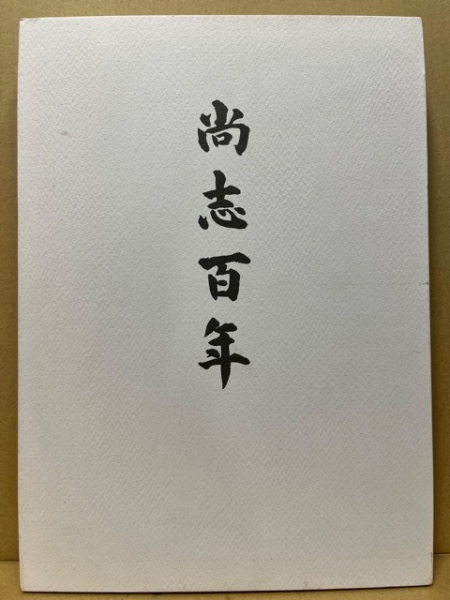 尚志百年